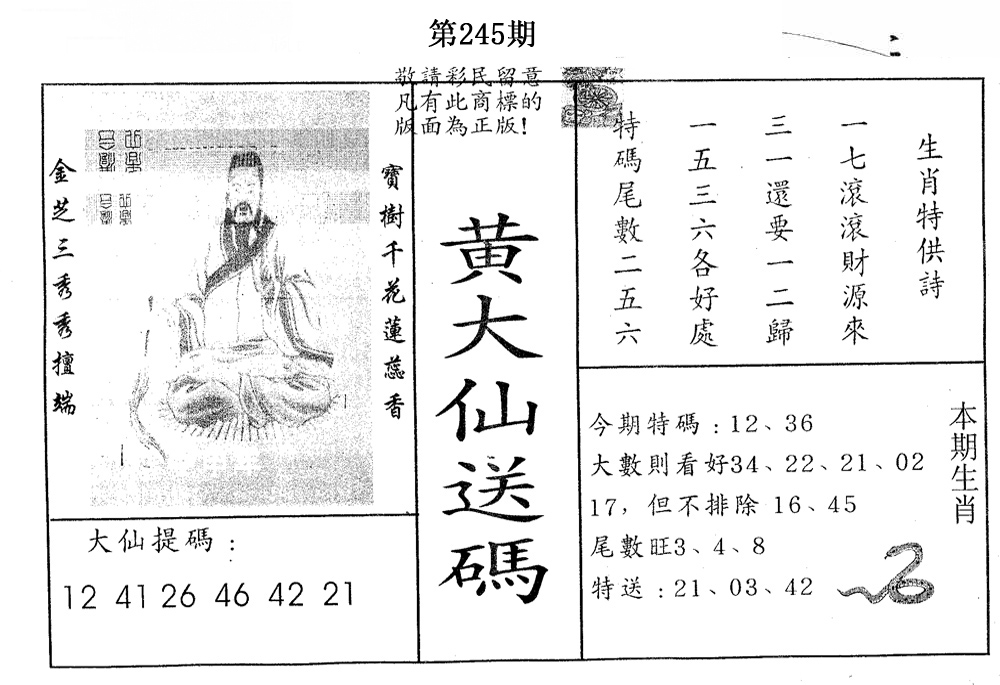 第245期
敬請彩民留意
凡有此商標的
版面為正版!
金芝三秀秀擅端
寶樹千花蓮蕊香
黃大仙送碼
生肖特供詩
一七滾滾財源來
三一還要一二歸
一五三六各好處
特碼尾數二五六
大仙提碼：
12 41 26 46 42 21
本期生肖
今期特碼：12、36
大數則看好34、22、21、02
17，但不排除 16、45
尾數旺3、4、8
特送：21、03、42